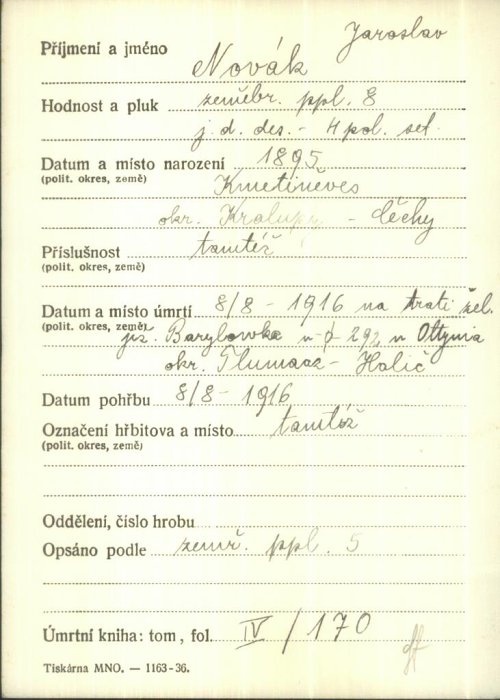 Jaroslav
Příjmení a jméno Novák
Hodnost a pluk zeměbr. ppl. 8
j. d. des. - 4 pol. set.
Datum a místo narození 1895
(polit. okres, země) Kmetiněves
okr. Kralupy - Čechy
Příslušnost tamtéž
(polit. okres, země)
Datum a místo úmrtí 8/8 - 1916 na trati žel.
(polit. okres, země) Barylowka 292 u Ottynia
okr. Tlumacz - Halič
Datum pohřbu 8/8 - 1916
Označení hřbitova a místo tamtéž
(polit. okres, země)
Oddělení, číslo hrobu
Opsáno podle zemř. ppl. 5
Úmrtní kniha: tom, fol. IV / 170
Tiskárna MNO. — 1163-36.